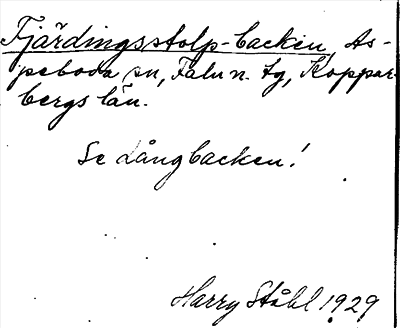 Fjärdingsstolp-backen, As-
peboda sn, Falu n. tg, Koppar-
bergs län.
Se Långbacken!
Harry Ståhl 1929